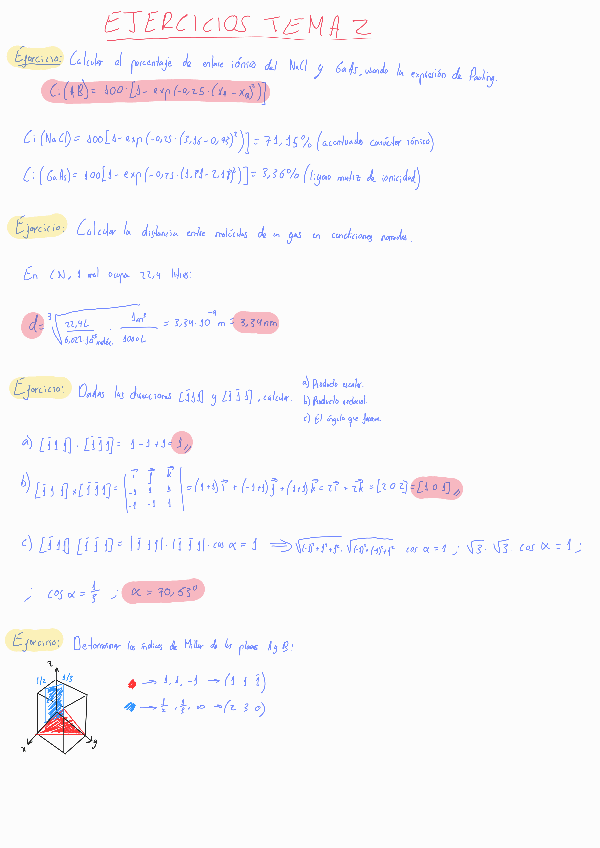 EJERCICIOS TEMA 2
Ejercicio: Calcular el porcentaje de enlace iónico del NaCl y GaAs, usando la expresión de Pauling.
Ci(AB) = 100·[1-exp(-0,25·(xA-xB)²)]
Ci(NaCl) = 100[1-exp(-0,25·(3,16-0,93)²)] = 71,15% (acentuado carácter iónico)
Ci(GaAs) = 100[1-exp(-0,25·(1,81-2,18)²)] = 3,36% (ligero matiz de ionicidad)
Ejercicio: Calcular la distancia entre moléculas de un gas en condiciones normales.
En CN, 1 mol ocupa 22,4 litros:
d = ³√(22,4L / 6,022·10²³ moléc. · 1m³ / 1000L) = 3,34·10⁻⁹ m = 3,34nm
Ejercicio: Dadas las direcciones [1̄11] y [1̄1̄1], calcular.
a) Producto escalar.
b) Producto vectorial.
c) El ángulo que forman.
a) [1̄11]·[1̄1̄1] = 1-1+1 = 1
b) [1̄11]×[1̄1̄1] = |i⃗ j⃗ k⃗; -1 1 1; -1 -1 1| = (1+1)i⃗ + (-1+1)j⃗ + (1+1)k⃗ = 2i⃗ + 2k⃗ = [202] = [101]
c) [1̄11][1̄1̄1] = |1̄11|·|1̄1̄1|·cos α = 1 ⟹ √(-1)²+1²+1²·√(-1)²+(-1)²+1² cos α = 1 ; √3·√3 cos α = 1 ;
; cos α = 1/3 ; α = 70,53º
Ejercicio: Determinar los índices de Miller de los planos A y B:
z
1/2 1/3
→ 1, 1, -1 → (1 1 1̄)
→ 1/2, 1/3, ∞ → (2 3 0)
x y